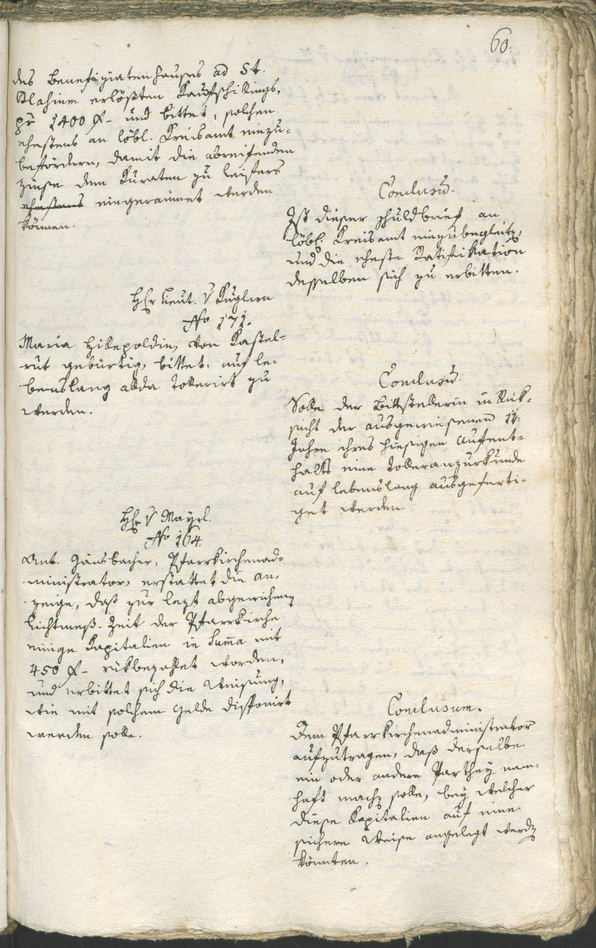 60.
des Benefiziatenhauses ad St.
erlößten Kaufschillings,
pr 1400 f – und bittet, solchen
ehestens an löbl. Kreisamt einzu-
befördern, damit die abreifenden
Zinse dem Kuraten zu
ehestens eingeraimet werden
können.
Conclusũ.
Ist dieser Schuldbrief an
löbl. Kreisamt
und die eheste Ratifikation
desselben sich zu erbitten.
Hr Lieut. v Kuglern
No 171.
Maria von Kastel-
rut gebürtig, bittet, auf le-
benslang allda tolerirt zu
werden.
Conclusũ
Solle der Bittstellerin in Rük-
sicht der ausgewiesenen
Jahre ihres hiesigen Aufent-
halts eine Toleranzurkunde
auf lebenslang ausgeferti-
get werden.
Hr v Mayrl.
No 164.
Ant. Gänsbacher, Pfarrkirchenad-
ministrator, erstattet die An-
zeige, daß zur lezt abgewichenen
Lichtmeß-Zeit der Pfarrkirche
einige Kapitalien in Suma mit
450 f – rükbezahlt worden,
und erbittet sich die Weisung,
wie mit solchem Gelde disponirt
werden solle.
Conclusum.
Dem Pfarrkirchenadministrator
aufzutragen, daß derselbe
ein oder andere Parthey nam-
haft machen solle, bey welcher
diese Kapitalien auf eine
sichere Weise angelegt werden
könnten.